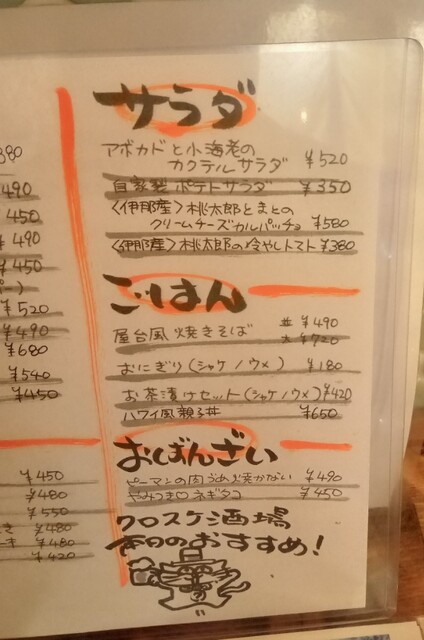 380
490
450
¥490
¥450
)
¥520
¥490
¥680
¥540
¥450
¥450
¥480
¥550
き ¥480
ーキ ¥480
¥420
サラダ
アボカドと小海老の
カクテルサラダ ¥520
自家製ポテトサラダ ¥350
〈伊那産〉桃太郎とまとの
クリームチーズカルパッチョ ¥580
〈伊那産〉桃太郎の冷やしトマト ¥380
ごはん
屋台風焼きそば 並 ¥490
大 ¥720
おにぎり(シャケ/ウメ) ¥180
お茶漬けセット(シャケ/ウメ) ¥420
ハワイ風親子丼 ¥650
おばんざい
ピーマンの肉づめ焼かない ¥490
ネギタコ ¥450
クロスケ酒場
本日のおすすめ!